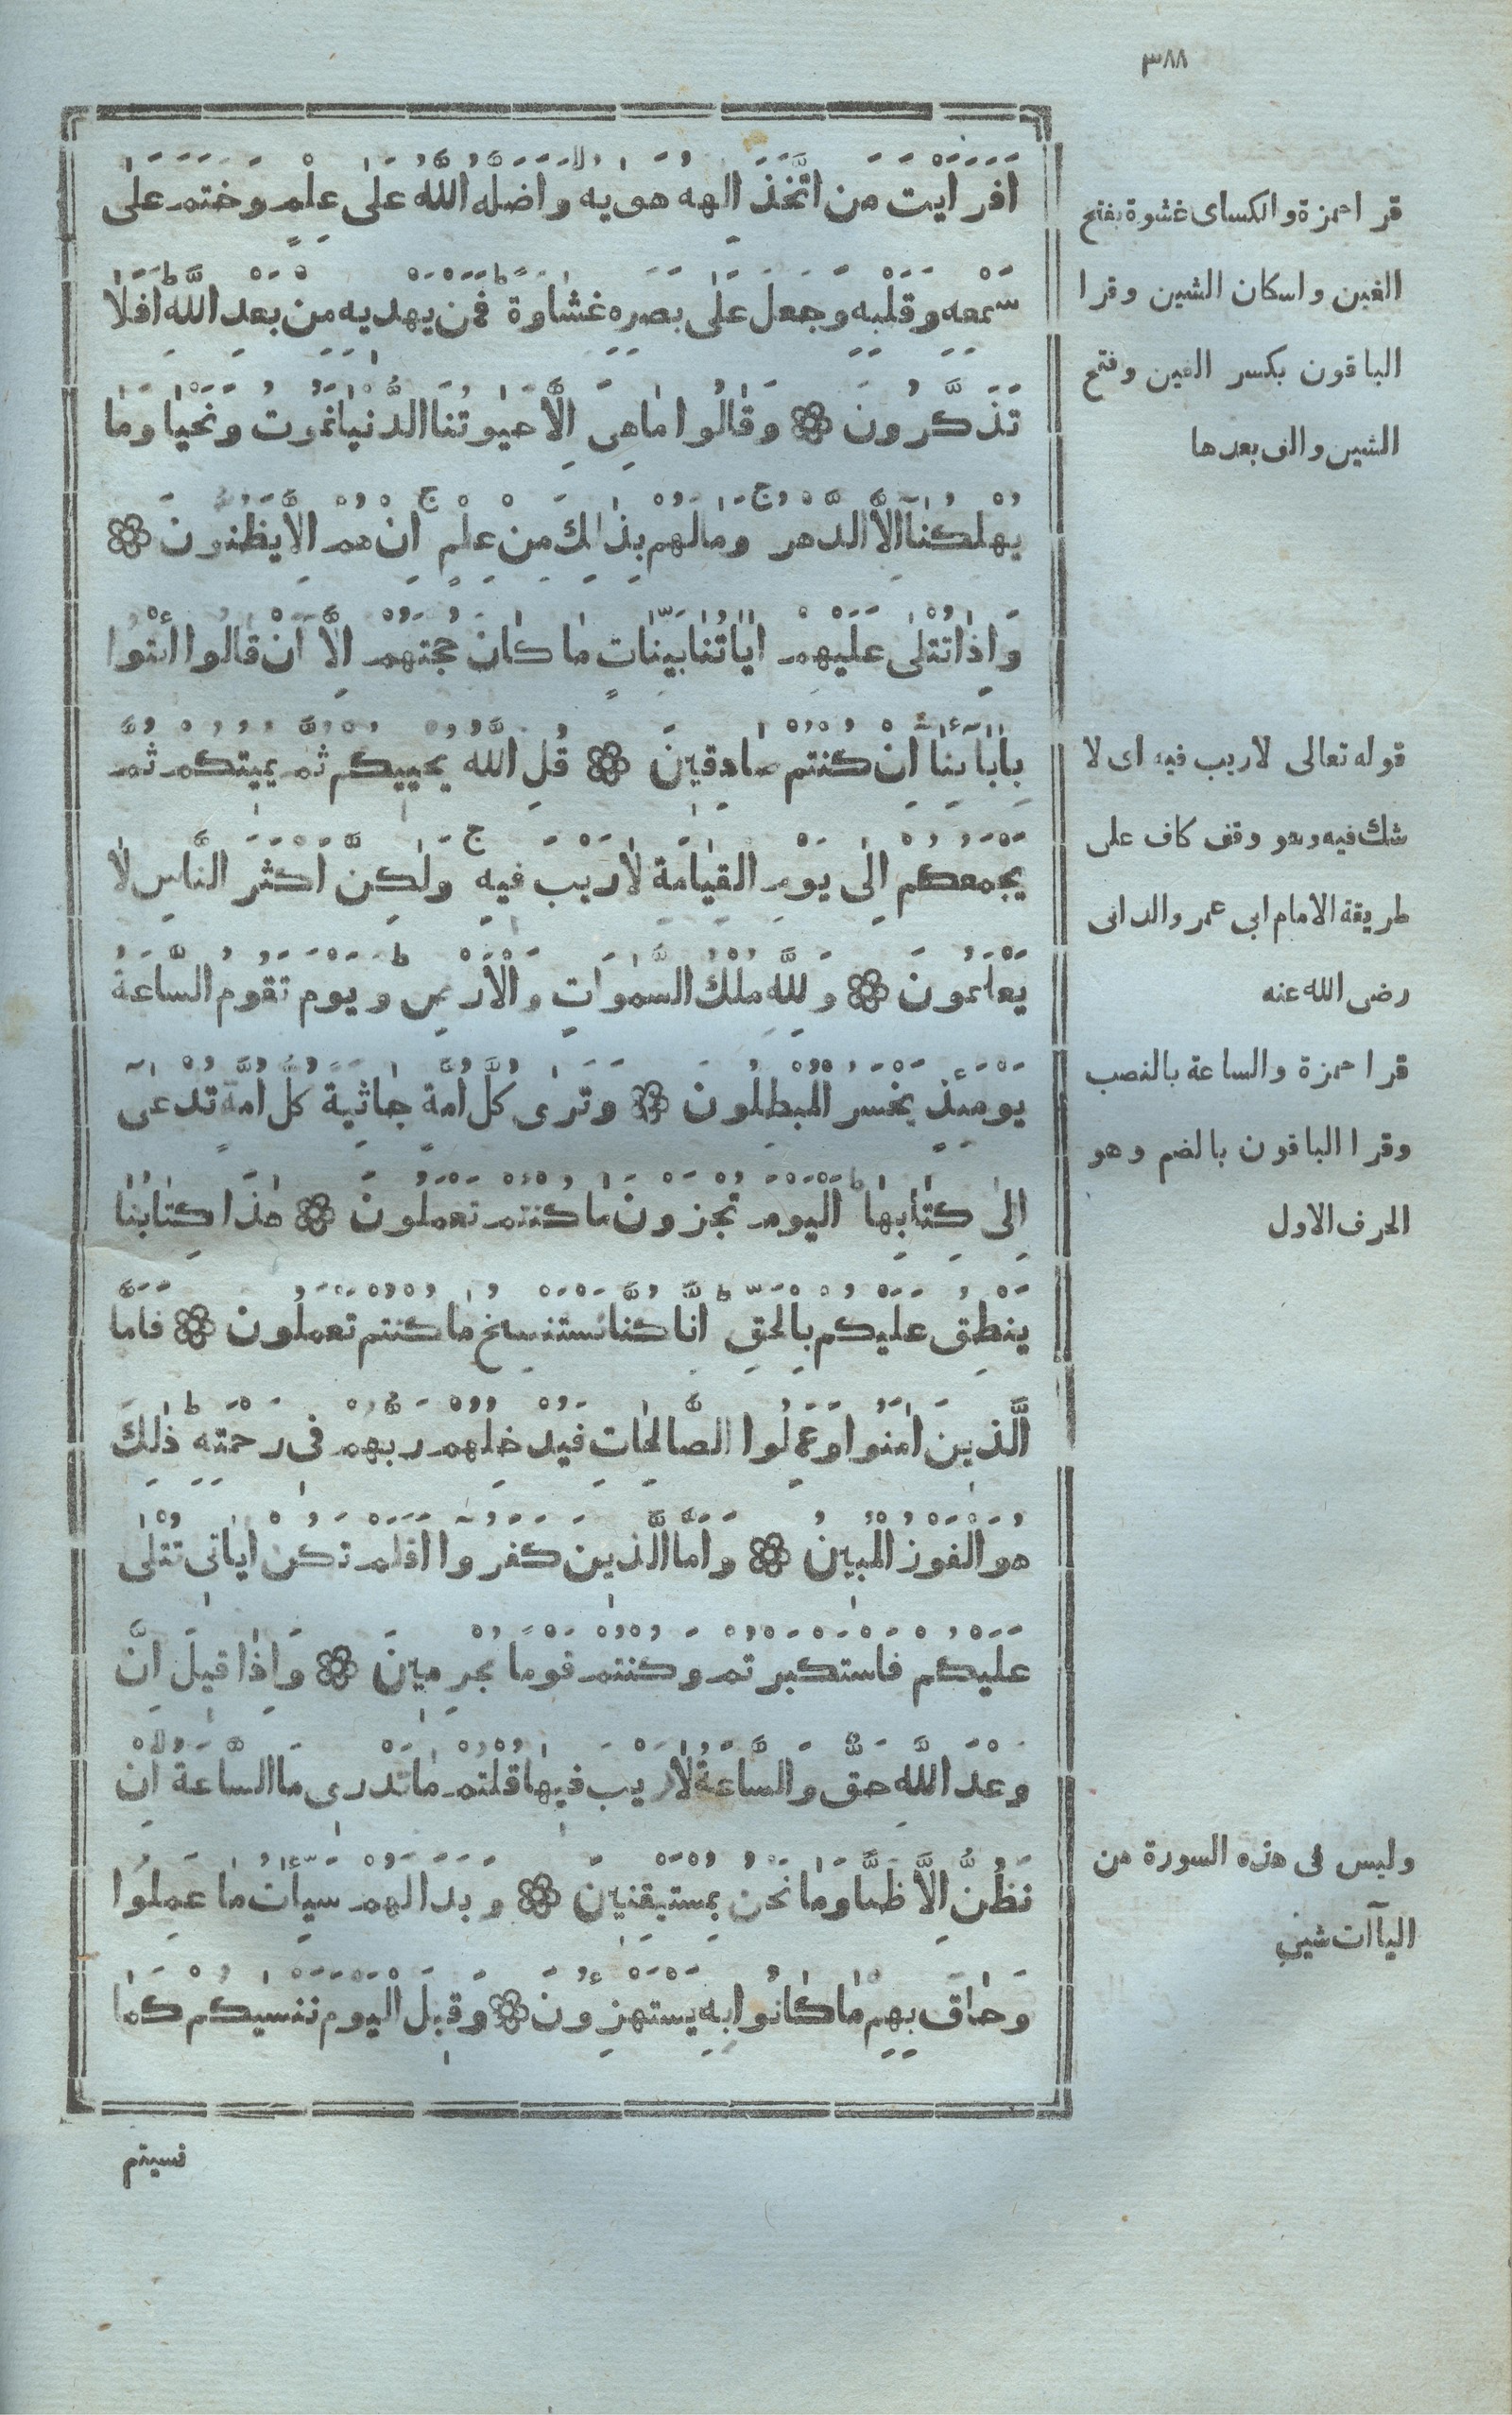 ٣٨٨
اَفَرَاَيْتَ مَنِ اتَّخَذَ اِلٰهَهُ هَوٰيهُ وَاَضَلَّهُ اللّٰهُ عَلٰى عِلْمٍ وَخَتَمَ عَلٰى
سَمْعِهِ وَقَلْبِهِ وَجَعَلَ عَلٰى بَصَرِهِ غِشَاوَةً ط فَمَنْ يَهْدِيهِ مِنْ بَعْدِ اللّٰهِ ط اَفَلَا
تَذَكَّرُونَ ۞ وَقَالُوا مَا هِىَ اِلَّا حَيٰوتُنَا الدُّنْيَا نَمُوتُ وَنَحْيَا وَمَا
يُهْلِكُنَآ اِلَّا الدَّهْرُ ج وَمَا لَهُمْ بِذٰلِكَ مِنْ عِلْمٍ ج اِنْ هُمْ اِلَّا يَظُنُّونَ ۞
وَاِذَا تُتْلٰى عَلَيْهِمْ اٰيَاتُنَا بَيِّنَاتٍ مَا كَانَ حُجَّتَهُمْ اِلَّا اَنْ قَالُوا ائْتُوا
بِاٰبَآئِنَا اِنْ كُنْتُمْ صَادِقِينَ ۞ قُلِ اللّٰهُ يُحْيِيكُمْ ثُمَّ يُمِيتُكُمْ ثُمَّ
يَجْمَعُكُمْ اِلٰى يَوْمِ الْقِيَامَةِ لَا رَيْبَ فِيهِ ج وَلٰكِنَّ اَكْثَرَ النَّاسِ لَا
يَعْلَمُونَ ۞ وَلِلّٰهِ مُلْكُ السَّمٰوَاتِ وَالْاَرْضِ ط وَيَوْمَ تَقُومُ السَّاعَةُ
يَوْمَئِذٍ يَخْسَرُ الْمُبْطِلُونَ ۞ وَتَرٰى كُلَّ اُمَّةٍ جَاثِيَةً كُلُّ اُمَّةٍ تُدْعٰٓى
اِلٰى كِتَابِهَا ط اَلْيَوْمَ تُجْزَوْنَ مَا كُنْتُمْ تَعْمَلُونَ ۞ هٰذَا كِتَابُنَا
يَنْطِقُ عَلَيْكُمْ بِالْحَقِّ ط اِنَّا كُنَّا نَسْتَنْسِخُ مَا كُنْتُمْ تَعْمَلُونَ ۞ فَاَمَّا
الَّذِينَ اٰمَنُوا وَعَمِلُوا الصَّالِحَاتِ فَيُدْخِلُهُمْ رَبُّهُمْ فِى رَحْمَتِهِ ط ذٰلِكَ
هُوَ الْفَوْزُ الْمُبِينُ ۞ وَاَمَّا الَّذِينَ كَفَرُوا اَفَلَمْ تَكُنْ اٰيَاتِى تُتْلٰى
عَلَيْكُمْ فَاسْتَكْبَرْتُمْ وَكُنْتُمْ قَوْمًا مُجْرِمِينَ ۞ وَاِذَا قِيلَ اِنَّ
وَعْدَ اللّٰهِ حَقٌّ وَالسَّاعَةُ لَا رَيْبَ فِيهَا قُلْتُمْ مَا نَدْرِى مَا السَّاعَةُ اِنْ
نَظُنُّ اِلَّا ظَنًّا وَمَا نَحْنُ بِمُسْتَيْقِنِينَ ۞ وَبَدَا لَهُمْ سَيِّاٰتُ مَا عَمِلُوا
وَحَاقَ بِهِمْ مَا كَانُوا بِهِ يَسْتَهْزِؤُنَ ۞ وَقِيلَ الْيَوْمَ نَنْسٰيكُمْ كَمَا
نسيتم
قرا حمزة والكساى غشوة بفتح
الغين واسكان الشين وقرا
الباقون بكسر الغين وفتح
الشين والف بعدها
قوله تعالى لا ريب فيه اى لا
شك فيه وهو وقف كاف على
طريقة الامام ابى عمرو الدانى
رضى الله عنه
قرا حمزة والساعة بالنصب
وقرا الباقون بالضم وهو
الحرف الاول
وليس فى هذه السورة من
اليآآت شيئ